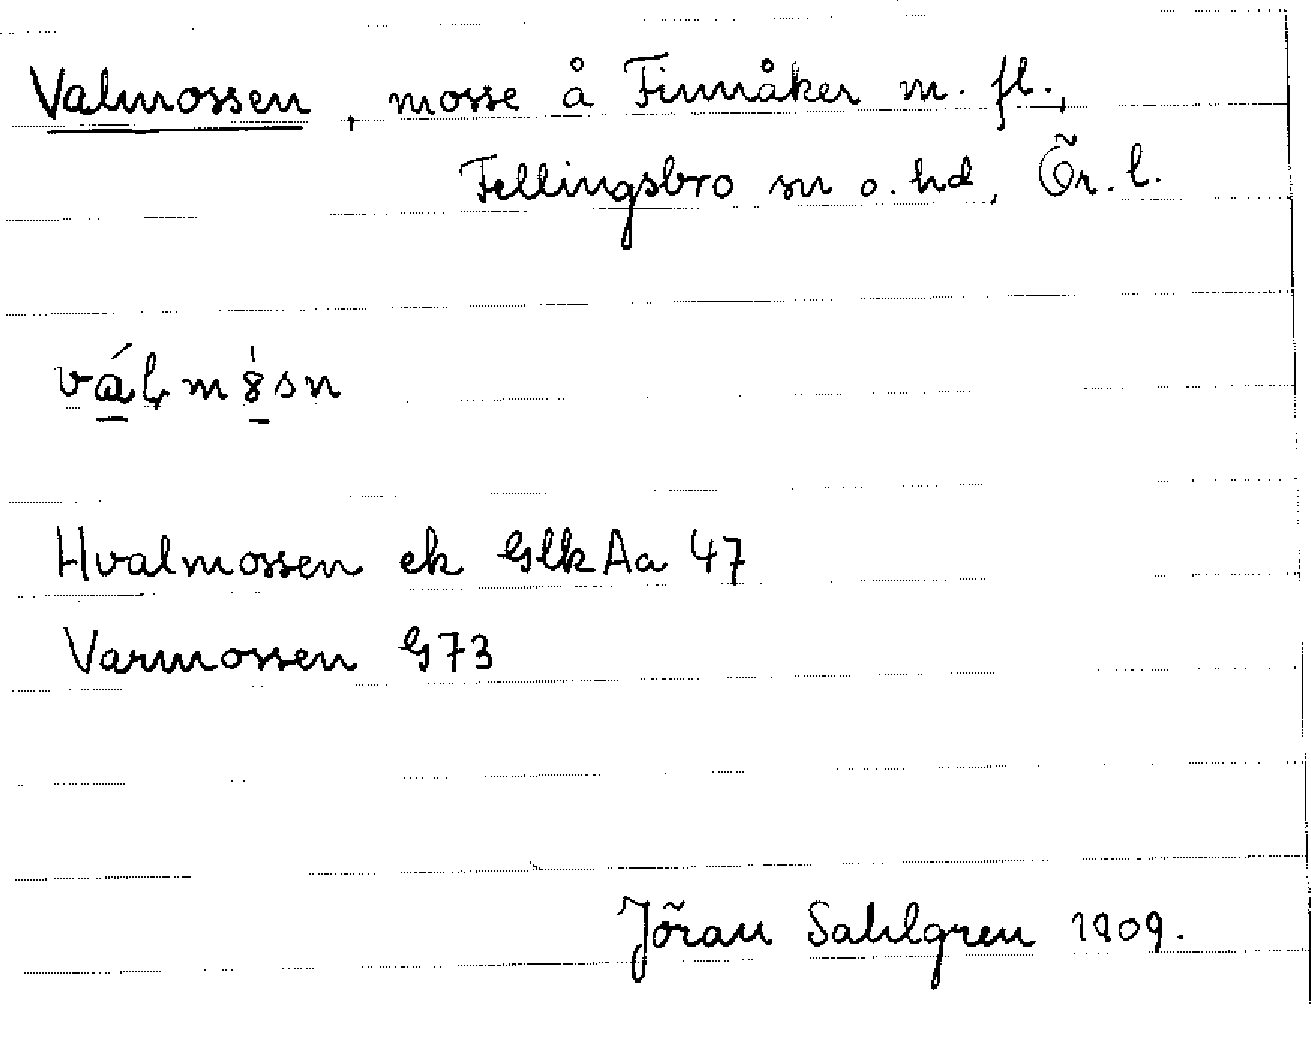 Valmossen, mosse å Finnåker m. fl.,
Fellingsbro sn o. hd, Ör. l.
Hvalmossen ek GlkAa 47
Varmossen G73
Jöran Sahlgren 1909.